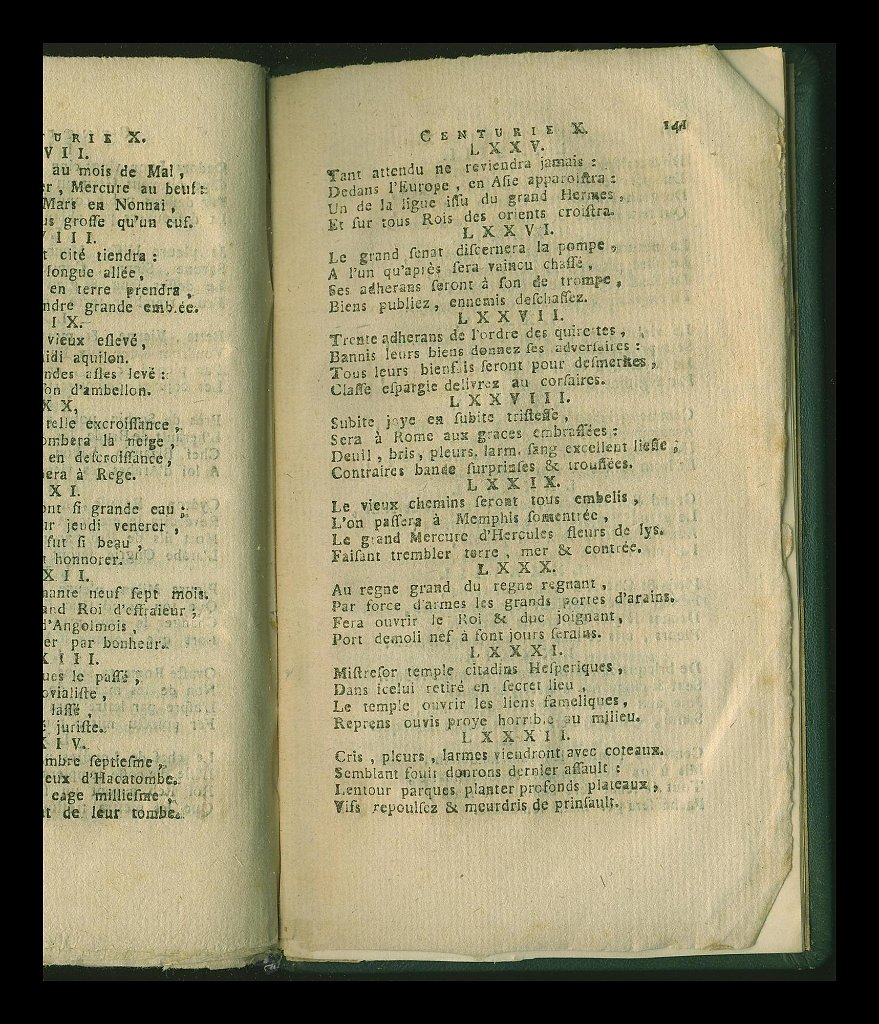 URIE X.
VII.
au mois de Mal,
er, Mercure au beuf:
Mars en Nonnai,
us grosse qu'un euf.
VIII.
t cité tiendra:
longue allée,
en terre prendra,
ndre grande emblée.
IX.
vieux eslevé,
idi aquilon.
ndes asles levé:
on d'ambellon.
XX,
relle excroissance,
ombera la neige,
en descroissance,
bera à Rege.
XI.
ont si grande eau:
ur jeudi venerer,
fut si beau,
t honnorer.
XII.
nante neuf sept mois.
and Roi d'effraieur;
d'Angolmois,
er par bonheur.
XIII.
ues le passé,
ovialiste,
lassé,
é juriste.
XIV.
mbre septiesme,
eux d'Hacatombe.
cage milliesme,
nt de leur tombe.
CENTURIE X. 141
LXXV.
Tant attendu ne reviendra jamais:
Dedans l'Europe, en Asie apparoistra:
Un de la ligue issu du grand Hermes,
Et sur tous Rois des orients croistra.
LXXVI.
Le grand senat discernera la pompe,
A l'un qu'après sera vaincu chassé,
Ses adherans seront à son de trompe,
Biens publiez, ennemis deschassez.
LXXVII.
Trente adherans de l'ordre des quiretes,
Bannis leurs biens donnez ses adversaires:
Tous leurs bienfais seront pour desmerites,
Classe espargie delivrez au corsaires.
LXXVIII.
Subite joye en subite tristesse,
Sera à Rome aux graces embrassées:
Deuil, bris, pleurs, larm. sang excellent liesse;
Contraires bande surprinses & troussées.
LXXIX.
Le vieux chemins seront tous embelis,
L'on passera à Memphis somentrée,
Le grand Mercure d'Hercules fleurs de lys.
Faisant trembler terre, mer & contrée.
LXXX.
Au regne grand du regne regnant,
Par force d'armes les grands portes d'arains.
Fera ouvrir le Roi & duc joignant,
Port demoli nef à font jours serains.
LXXXI.
Mistresor temple citadins Hesperiques,
Dans icelui retiré en secret lieu,
Le temple ouvrir les liens fameliques,
Reprens ouvis proye horrible au milieu.
LXXXII.
Cris, pleurs, larmes viendront avec coteaux.
Semblant fouit donrons dernier assault:
Lentour parques planter profonds plateaux,
Vifs repoulsez & meurdris de prinsault.